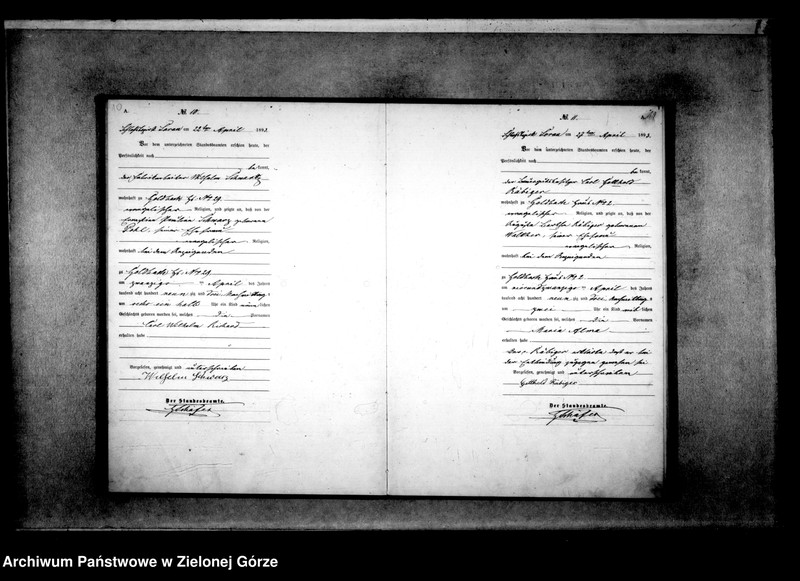 A.
№ 10.
Sorau am 22ten April 1893.
Vor dem unterzeichneten Standesbeamten erschien heute, der
Persönlichkeit nach
bekannt,
der Fabrikarbeiter Wilhelm Schwarz
wohnhaft zu Goldbach № 29
evangelischer Religion, und zeigte an, daß von der
Pauline Schwarz geborenen
Pohl, seiner Ehefrau
evangelischer Religion,
wohnhaft bei dem Anzeigenden
zu Goldbach № 29
am zwanzigsten April des Jahres
tausend acht hundert neunzig und drei Nachmittags
um sechs ein halb Uhr ein Kind männlichen
Geschlechts geboren worden sei, welches die Vornamen
Carl Wilhelm Richard
erhalten habe
Vorgelesen, genehmigt und unterschrieben
Wilhelm Schwarz
Der Standesbeamte.
Schäfer
№ 11.
Sorau am 27ten April 1893.
Vor dem unterzeichneten Standesbeamten erschien heute, der
Persönlichkeit nach
bekannt,
der Carl Gotthold
Räbiger
wohnhaft zu Goldbach Haus № 2
evangelischer Religion, und zeigte an, daß von der
Bertha Räbiger geborenen
Walther, seiner Ehefrau
evangelischer Religion,
wohnhaft bei dem Anzeigenden
zu Goldbach Haus № 2
am vierundzwanzigsten April des Jahres
tausend acht hundert neunzig und drei Nachmittags
um zwei Uhr ein Kind weiblichen
Geschlechts geboren worden sei, welches die Vornamen
Maria Alma
erhalten habe
Räbiger erklärte daß er bei
der Entbindung zugegen gewesen sei
Vorgelesen, genehmigt und unterschrieben
Gotthold Räbiger
Der Standesbeamte.
Schäfer
Archiwum Państwowe w Zielonej Górze